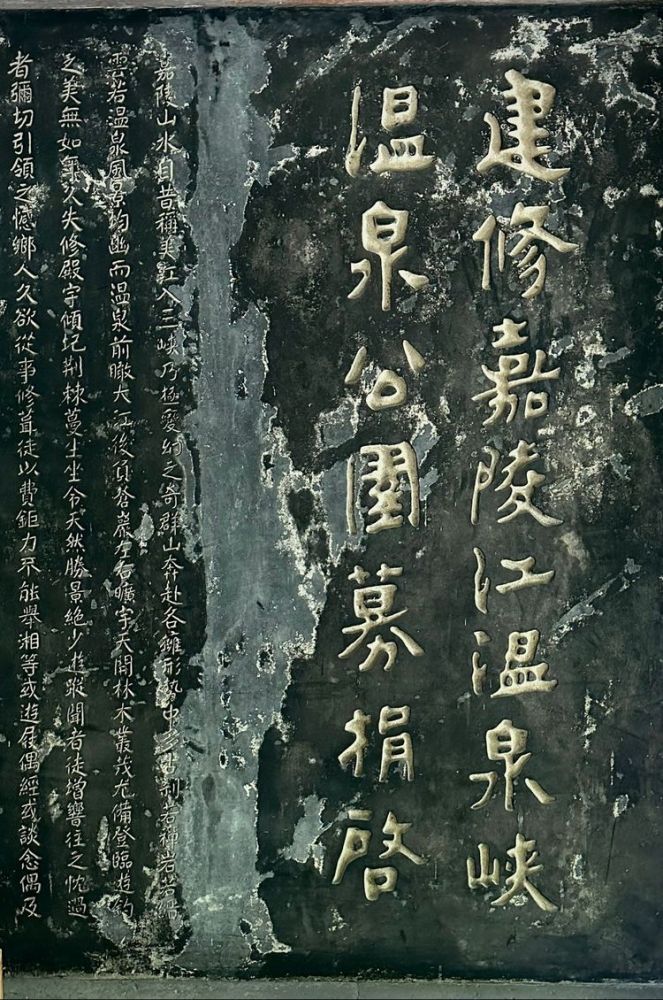 建修嘉陵江温泉峡
温泉公園募捐啓
嘉陵山水自昔稱美江入三峡乃極變幻之奇群山奔赴各擁形勢中多古刹若禪岩若縉
雲若温泉風景均幽而温泉前瞰大江後負苍巖左右曠宇天開林木叢茂尤備登臨遊釣
之美無如年久失修殿宇傾圮荆棘蔓生坐令天然勝景絶少遊蹤聞者徒增嚮往之忱過
者彌切引領之憾鄉人久欲從事修葺徒以費鉅力不能舉湘等或遊屐偶經或談念偶及